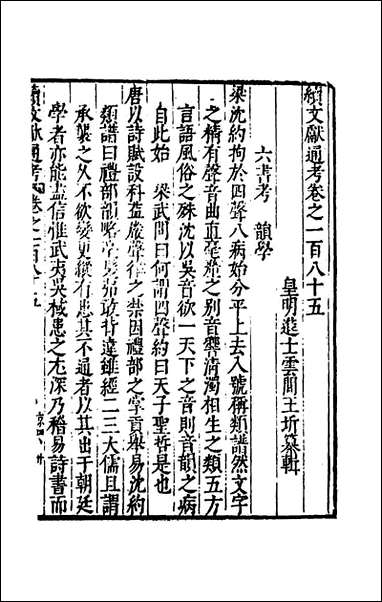 續文獻通考卷之一百八十五
皇明進士雲間王圻纂輯
六書考　韻學
梁沈約拘於四聲八病始分平上去入號稱類譜然文字
之精有聲音曲直毫釐之别音響清濁相生之類五方
言語風俗之殊沈以吳音欲一天下之音則音韻之病
自此始　梁武問曰何謂四聲約曰天子聖哲是也
唐以詩賦設科益嚴聲律之禁因禮部之掌貢舉易沈約
類譜曰禮部韻略毫髮弗敢持違雖經二三大儒且謂
承襲之久不欲變更縱有患其不通者以其出于朝廷
學者亦能盡信惟武夷吳棫患之尤深乃稽易詩書而
續文獻通考 卷之一百八十五